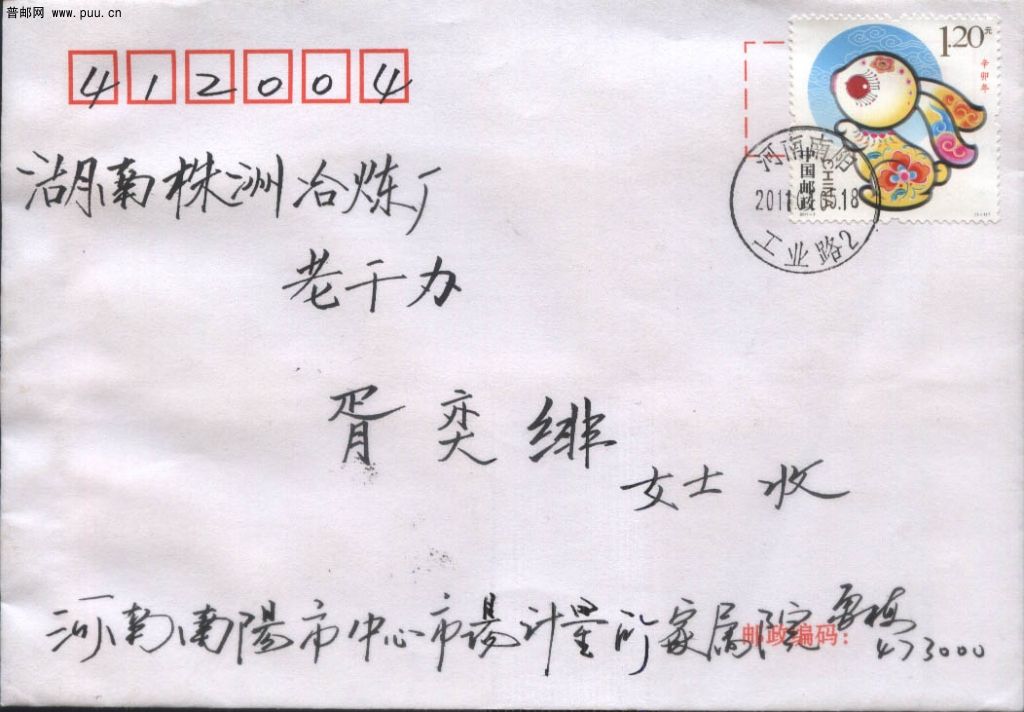 普邮网 www.puu.cn
412004
1.20元
辛卯年
中国邮政
CHINA
河南南阳
2011.05.18
工业路2
湖南株洲冶炼厂
老干办
胥奕绯
女士 收
河南南陽市中心市場计量所家属院
邮政编码：
473000